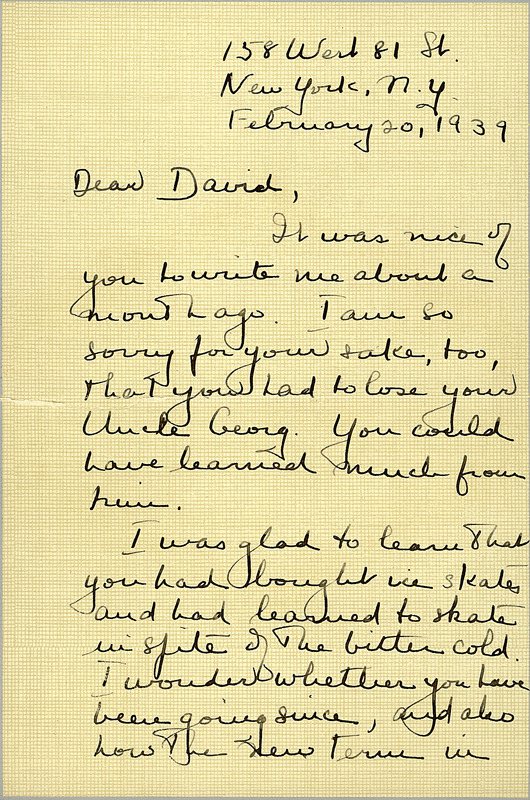 158 West 81 St.
New York, N.Y.
February 20, 1939
Dear David,
It was nice of
you to write me about a
month ago. I am so
sorry for your sake, too,
that you had to lose your
Uncle Georg. You could
have learned much from
him.
I was glad to learn that
you had bought ice skates
and had learned to skate
in spite of the bitter cold.
I wonder whether you have
been going since, and also
how the new term in